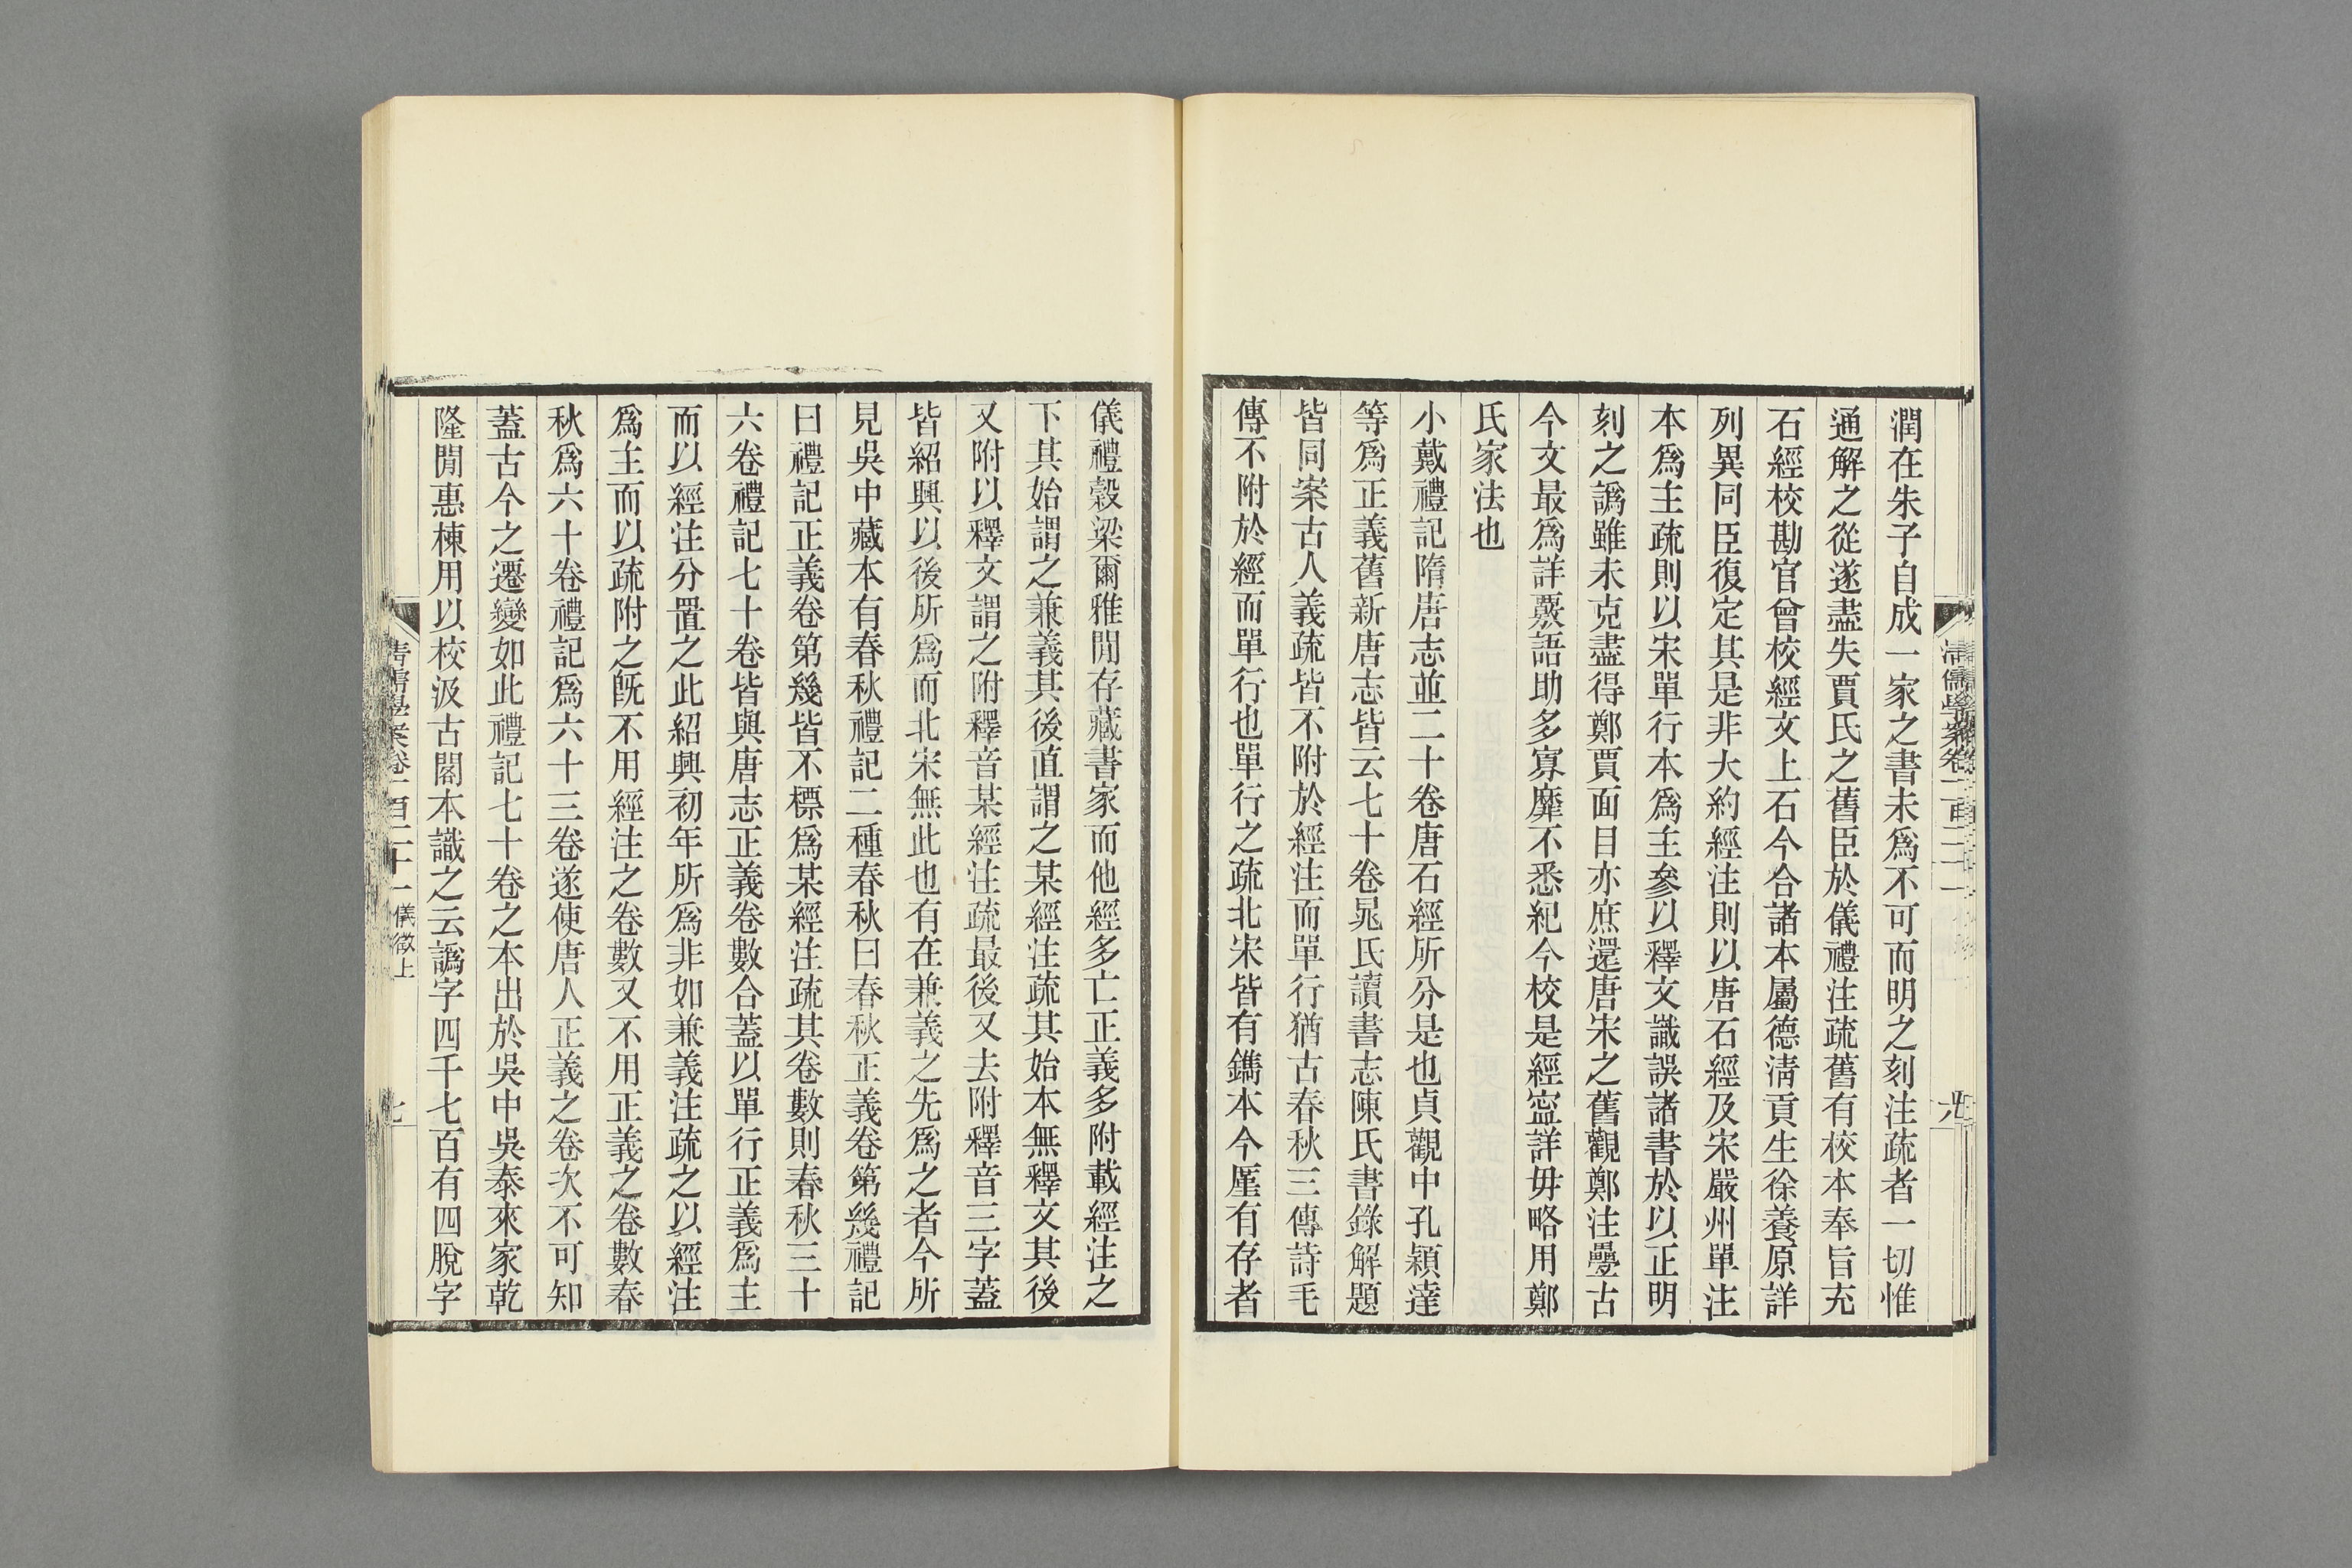 潤在朱子自成一家之書未爲不可而明之刻注疏者一切惟
通解之從遂盡失賈氏之舊臣於儀禮注疏舊有校本奉旨充
石經校勘官曾校經文上石今合諸本屬德淸貢生徐養原詳
列異同臣復定其是非大約經注則以唐石經及宋嚴州單注
本爲主疏則以宋單行本爲主參以釋文識誤諸書於以正明
刻之譌雖未克盡得鄭賈面目亦庶還唐宋之舊觀鄭注疊古
今文最爲詳覈語助多寡靡不悉紀今校是經寍詳毋略用鄭
氏家法也
小戴禮記隋唐志並二十卷唐石經所分是也貞觀中孔穎達
等爲正義舊新唐志皆云七十卷晁氏讀書志陳氏書錄解題
皆同案古人義疏皆不附於經注而單行猶古春秋三傳詩毛
傳不附於經而單行也單行之疏北宋皆有鐫本今厪有存者
儀禮穀梁爾雅閒存藏書家而他經多亡正義多附載經注之
下其始謂之兼義其後直謂之某經注疏其始本無釋文其後
又附以釋文謂之附釋音某經注疏最後又去附釋音三字蓋
皆紹興以後所爲而北宋無此也有在兼義之先爲之者今所
見吳中藏本有春秋禮記二種春秋曰春秋正義卷第幾禮記
曰禮記正義卷第幾皆不標爲某經注疏其卷數則春秋三十
六卷禮記七十卷皆與唐志正義卷數合蓋以單行正義爲主
而以經注分置之此紹興初年所爲非如兼義注疏之以經注
爲主而以疏附之旣不用經注之卷數又不用正義之卷數春
秋爲六十卷禮記爲六十三卷遂使唐人正義之卷次不可知
蓋古今之遷變如此禮記七十卷之本出於吳中吳泰來家乾
隆閒惠棟用以校汲古閣本識之云譌字四千七百有四脫字
清儒學案卷一百二十一 儀徵上
七